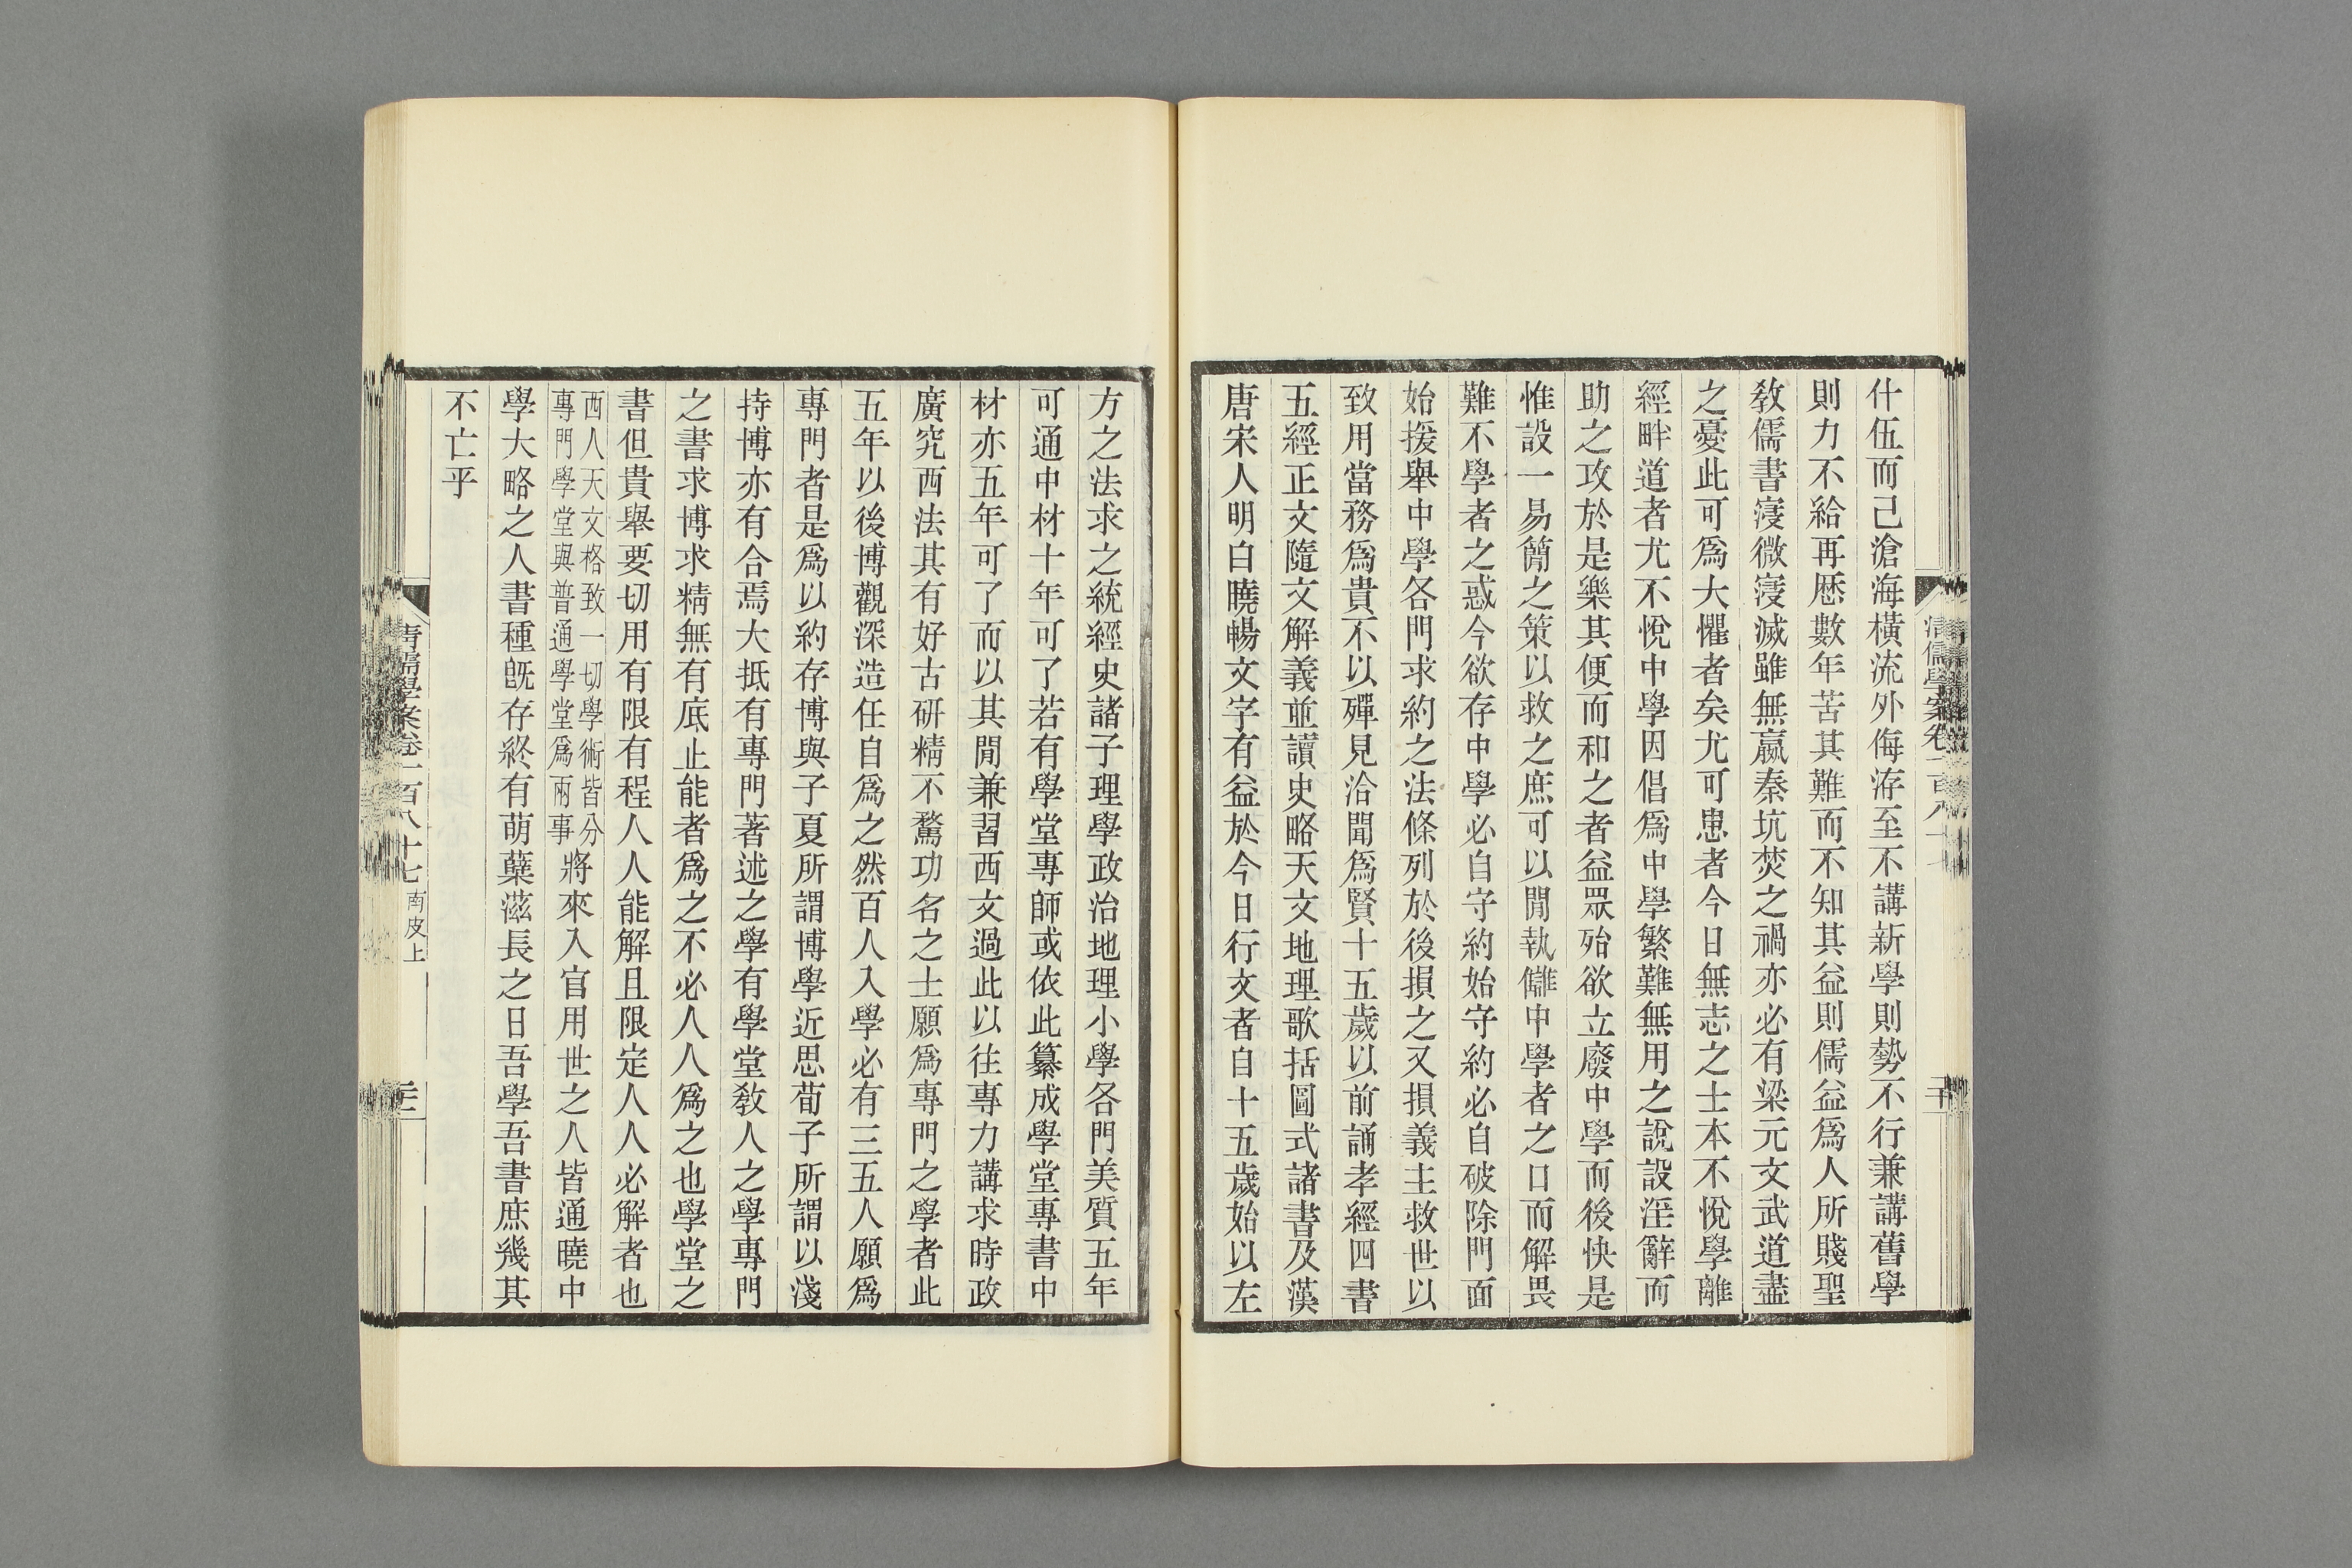 什伍而己滄海橫流外侮洊至不講新學則勢不行兼講舊學
則力不給再歷數年苦其難而不知其益則儒益爲人所賤聖
教儒書寖微寖滅雖無嬴秦坑焚之禍亦必有梁元文武道盡
之憂此可爲大懼者矣尤可患者今日無志之士本不悅學離
經畔道者尤不悅中學因倡爲中學繁難無用之說設淫辭而
助之攻於是樂其便而和之者益眾殆欲立廢中學而後快是
惟設一易簡之策以救之庶可以閒執讎中學者之口而解畏
難不學者之惑今欲存中學必自守約始守約必自破除門面
始援舉中學各門求約之法條列於後損之又損義主救世以
致用當務爲貴不以殫見洽聞爲賢十五歲以前誦孝經四書
五經正文隨文解義並讀史略天文地理歌括圖式諸書及漢
唐宋人明白曉暢文字有益於今日行文者自十五歲始以左
方之法求之統經史諸子理學政治地理小學各門美質五年
可通中材十年可了若有學堂專師或依此纂成學堂專書中
材亦五年可了而以其閒兼習西文過此以往專力講求時政
廣究西法其有好古研精不騖功名之士願爲專門之學者此
五年以後博觀深造任自爲之然百人入學必有三五人願爲
專門者是爲以約存博與子夏所謂博學近思荀子所謂以淺
持博亦有合焉大抵有專門著述之學有學堂教人之學專門
之書求博求精無有底止能者爲之不必人人爲之也學堂之
書但貴舉要切用有限有程人人能解且限定人人必解者也
西人天文格致一切學術皆分
專門學堂與普通學堂爲兩事
將來入官用世之人皆通曉中
學大略之人書種旣存終有萌蘖滋長之日吾學吾書庶幾其
不亡乎
清儒學案卷一百八十七
南皮上